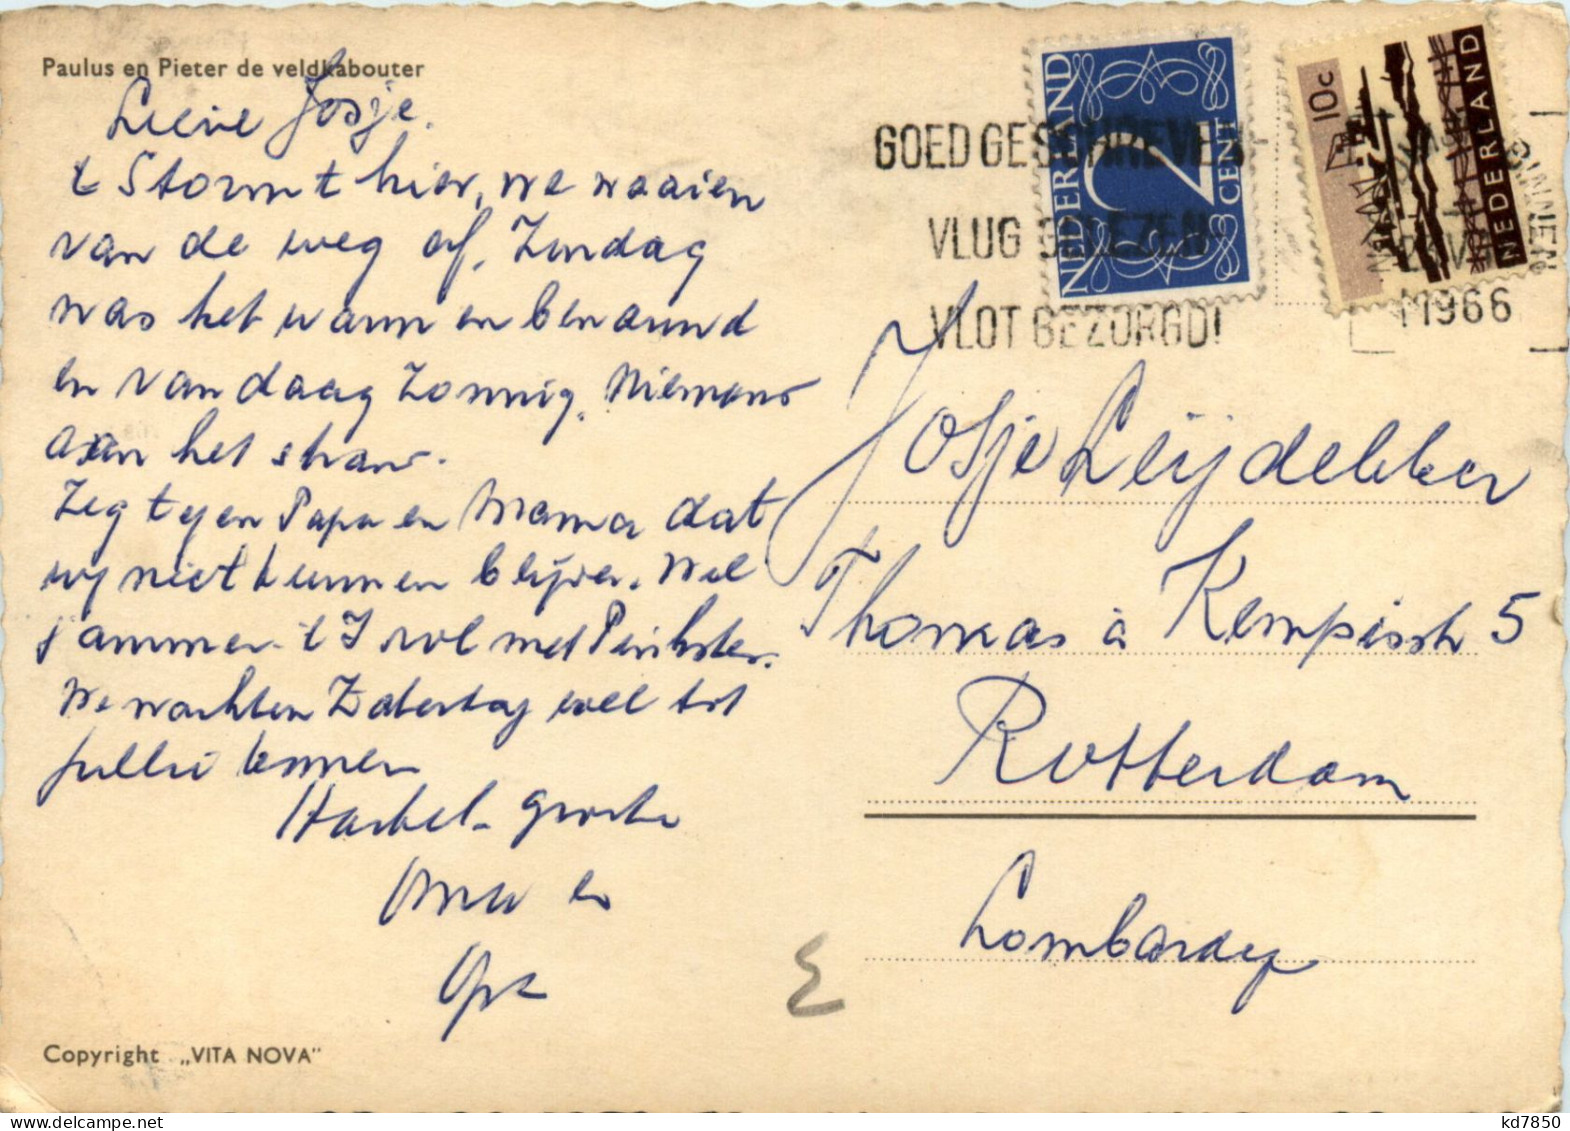 Paulus en Pieter de veldkabouter
Lieve Josje.
't Stormt hier, we waaien
van de weg af. Zondag
was het warm en benauwd
en vandaag zonnig. Niemand
aan het strand.
Zeg tegen Papa en Mama dat
wij niet kunnen blijven. Wel
jammer. 't Is vol met Pinksteren.
We wachten Zaterdag wel tot
jullie komen
Hartel. groeten
Oma en
Opa
Copyright „VITA NOVA"
GOED GESCHREVEN
VLUG GELEZEN
VLOT BEZORGD!
NEDERLAND
2
CENT
10c
NEDERLAND
1966
Josje Leijdekker
Thomas à Kempisstr 5
Rotterdam
Lombardije
Σ
kd7850